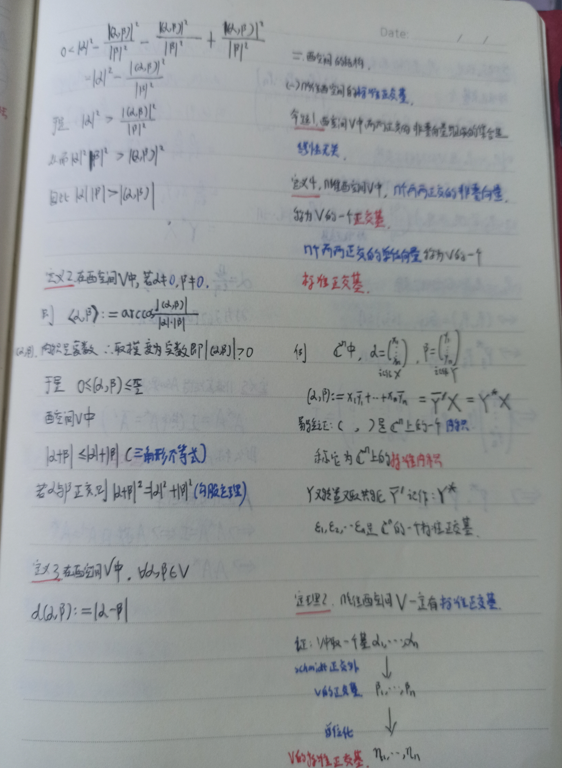 0<|α|² - |(α,β)|²/|β|² - |(α,β)|²/|β|² + |(α,β)|²/|β|²
=|α|² - |(α,β)|²/|β|²
于是 |α|² > |(α,β)|²/|β|²
从而 |α|²|β|² > |(α,β)|²
因此 |α||β|>|(α,β)|
定义2 在酉空间V中,若α≠0,β≠0.
则 <α,β> := arccos |(α,β)|/(|α||β|)
内积是复数 ∴取模变为实数即|(α,β)|≥0
于是 0≤<α,β>≤π/2
酉空间V中
|α+β| ≤|α|+|β| (三角形不等式)
若α与β正交,则 |α+β|²=|α|²+|β|² (勾股定理)
定义3 在酉空间V中, ∀α,β∈V
d(α,β):=|α-β|
Date: / /
二.酉空间的结构.
(一)n维酉空间的标准正交基.
命题1,酉空间V中两两正交的非零向量组成的集合是
线性无关.
定义4,n维酉空间V中, n个两两正交的非零向量.
称为V的一个正交基.
n个两两正交的单位向量 称为V的一个
标准正交基.
例 Cⁿ中, α=(x₁ ⋮ xₙ) , β=(y₁ ⋮ yₙ)
记作X 记作Y
(α,β):= x₁ȳ₁+…+xₙȳₙ = Ȳ'X = Y*X
易验证: ( , ) 是Cⁿ上的一个内积
称它为Cⁿ上的标准内积
Y转置又取共轭 Ȳ' 记作: Y*
ε₁, ε₂, … εₙ是 Cⁿ的一个标准正交基.
定理2. n维酉空间V一定有标准正交基.
证: V中取一个基 α₁,…,αₙ
schmidt正交化 ↓
V的正交基 β₁,…,βₙ
单位化 ↓
V的标准正交基. η₁,…,ηₙ